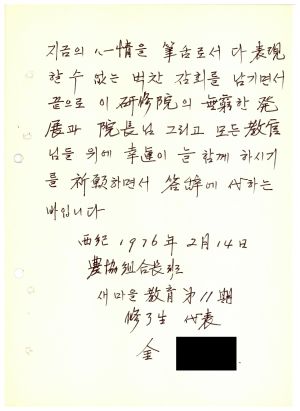 지금의 心情을 筆舌로서 다 表現
할 수 없는 벅찬 감회를 남기면서
끝으로 이 研修院의 無窮한 発
展과 院長님 그리고 모든 教官
님들 위에 幸運이 늘 함께 하시기
를 祈願하면서 答辞에 代하는
바입니다
西紀 1976年 2月 14日
農協組合長班
새마을 教育 第11期
修了生 代表
金